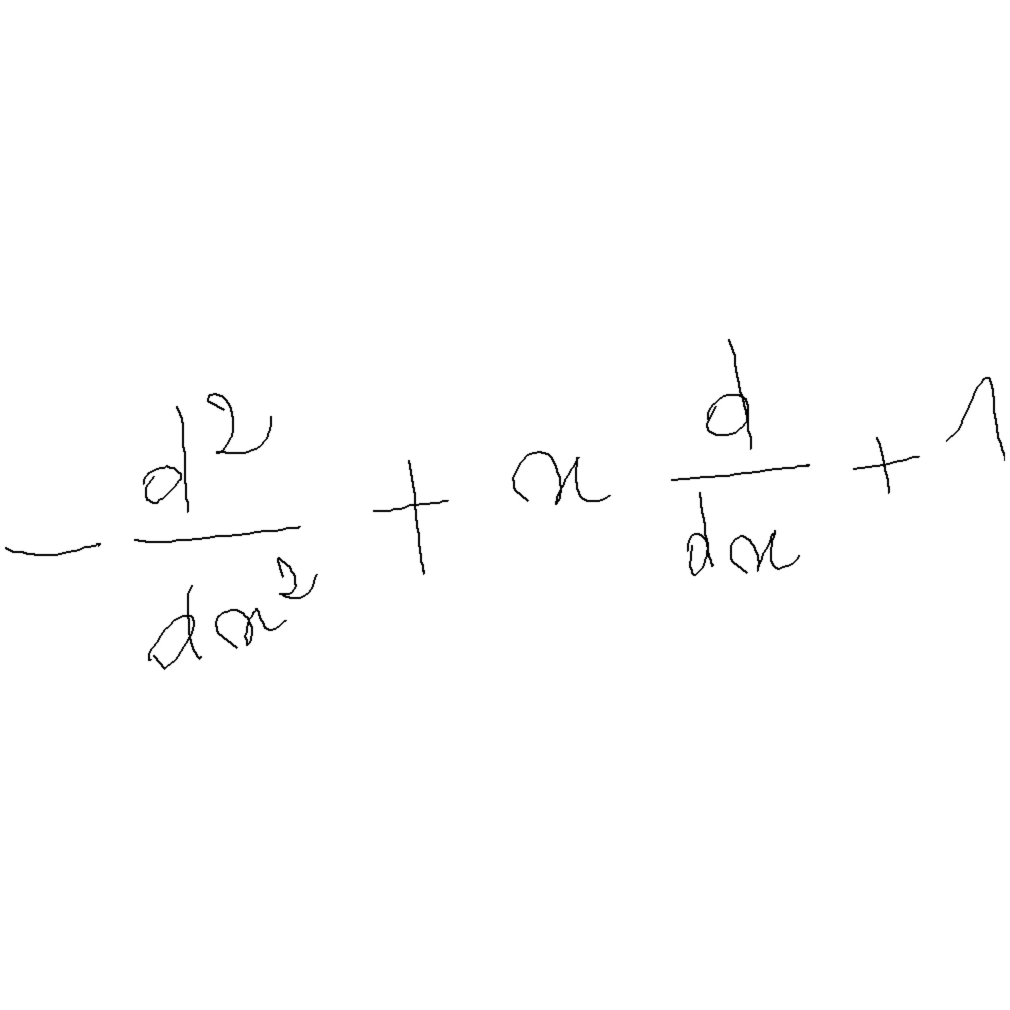 $-\frac{d^2}{dx^2} + x\frac{d}{dx} + 1$